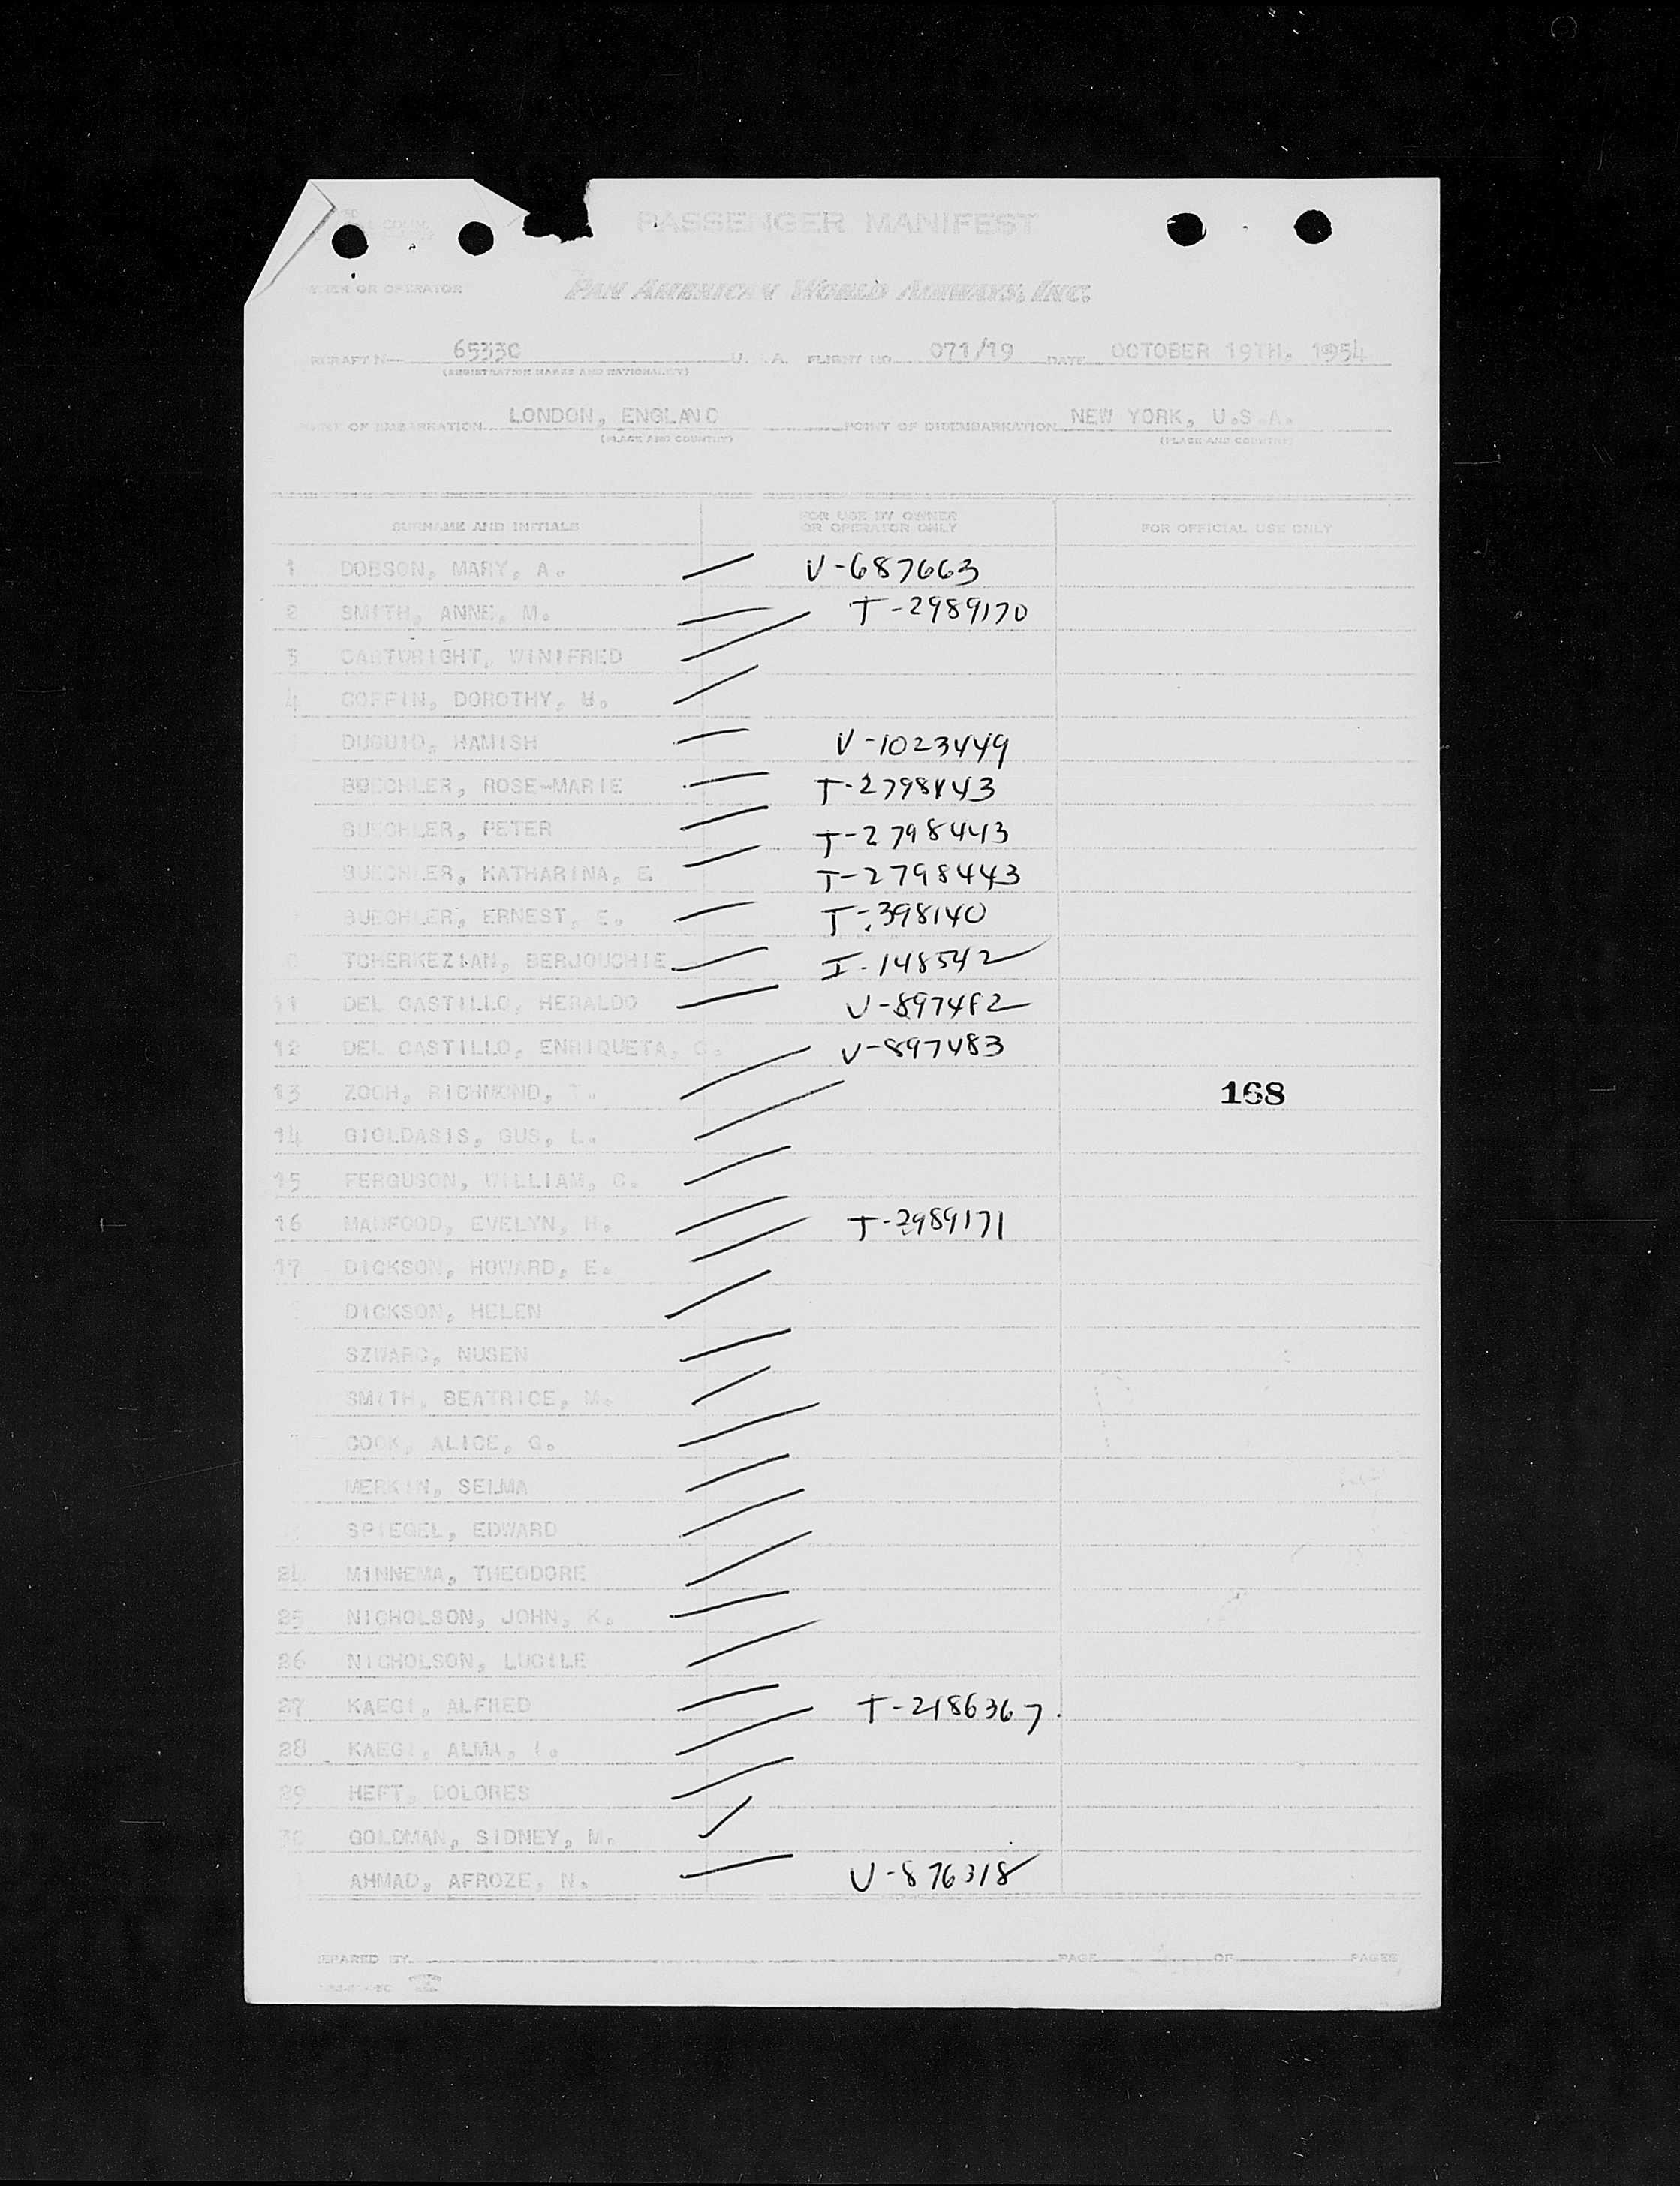 PASSENGER MANIFEST
OR OPERATOR
PAN AMERICAN WORLD AIRWAYS, INC.
6533C U. A. FLIGHT NO. 071/19 DATE OCTOBER 19TH, 1954
(REGISTRATION MARKS AND NATIONALITY)
OF EMBARKATION LONDON, ENGLAND POINT OF DISEMBARKATION NEW YORK, U.S.A.
(PLACE AND COUNTRY) (PLACE AND COUNTRY)
SURNAME AND INITIALS FOR USE BY OWNER OR OPERATOR ONLY FOR OFFICIAL USE ONLY
1 DOBSON, MARY, A. V-687663
2 SMITH, ANNE, M. T-2989170
3 CARTWRIGHT, WINIFRED
4 COFFIN, DOROTHY, H.
DUGUID, HAMISH V-1023449
BUECHLER, ROSE-MARIE T-2798443
BUECHLER, PETER T-2798443
BUECHLER, KATHARINA, E. T-2798443
BUECHLER, ERNEST, E. T-398140
TCHERKEZIAN, BERJOUCHIE I-148542
11 DEL CASTILLO, HERALDO V-897482
12 DEL CASTILLO, ENRIQUETA, C. V-897483
13 ZOOH, RICHMOND, T. 168
14 GIOLDASIS, GUS, L.
15 FERGUSON, WILLIAM, C.
16 MAHFOOD, EVELYN, H. T-2989171
17 DICKSON, HOWARD, E.
DICKSON, HELEN
SZWARC, NUSEN
SMITH, BEATRICE, M.
COOK, ALICE, G.
MERKIN, SELMA
SPIEGEL, EDWARD
24 MINNEMA, THEODORE
25 NICHOLSON, JOHN, K.
26 NICHOLSON, LUCILE
27 KAEGI, ALFRED T-2186367
28 KAEGI, ALMA, I.
29 HEFT, DOLORES
30 GOLDMAN, SIDNEY, M.
AHMAD, AFROZE, N. V-876318
EPARED BY PAGE OF PAGES